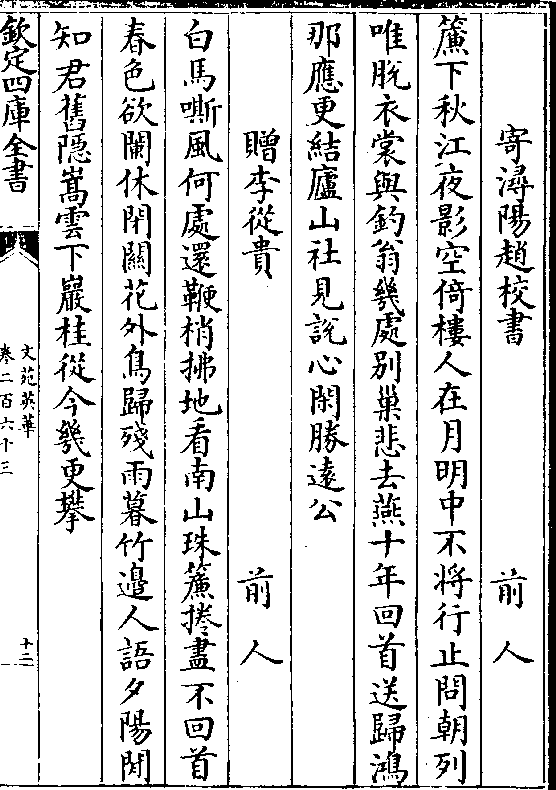 寄潯陽趙校書　前人
簾下秋江夜影空倚樓人在月明中不將行止問朝列
唯脫衣裳與釣翁幾處别巢悲去燕十年回首送歸鴻
那應更結廬山社見說心閑勝遠公
贈李從貴　前人
白馬嘶風何處還鞭梢拂地看南山珠簾捲盡不回首
春色欲闌休閉關花外鳥歸殘雨暮竹邉人語夕陽閒
知君舊隠嵩雲下巖桂從今幾更攀
欽定四庫全書
文苑英華
卷二百六十三
十二